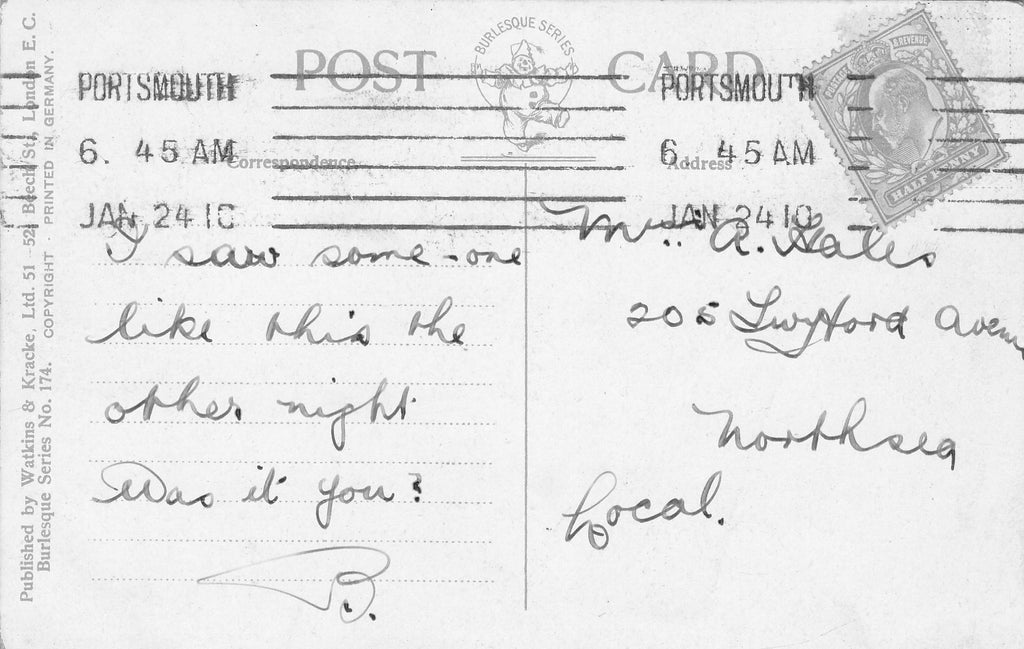 BURLESQUE SERIES
POST CARD
PORTSMOUTH
6. 45 AM
JAN 24 10
PORTSMOUTH
6. 45 AM
JAN 24 10
& REVENUE
HALF PENNY
Correspondence
Address
I saw some-one
like this the
other night
Was it you?
B.
A. Hales
205 Twyford Avenu
Northsea
Local.
Published by Watkins & Kracke, Ltd. 51 - 52 Beech St., London E. C.
Burlesque Series No. 174. COPYRIGHT - PRINTED IN GERMANY.